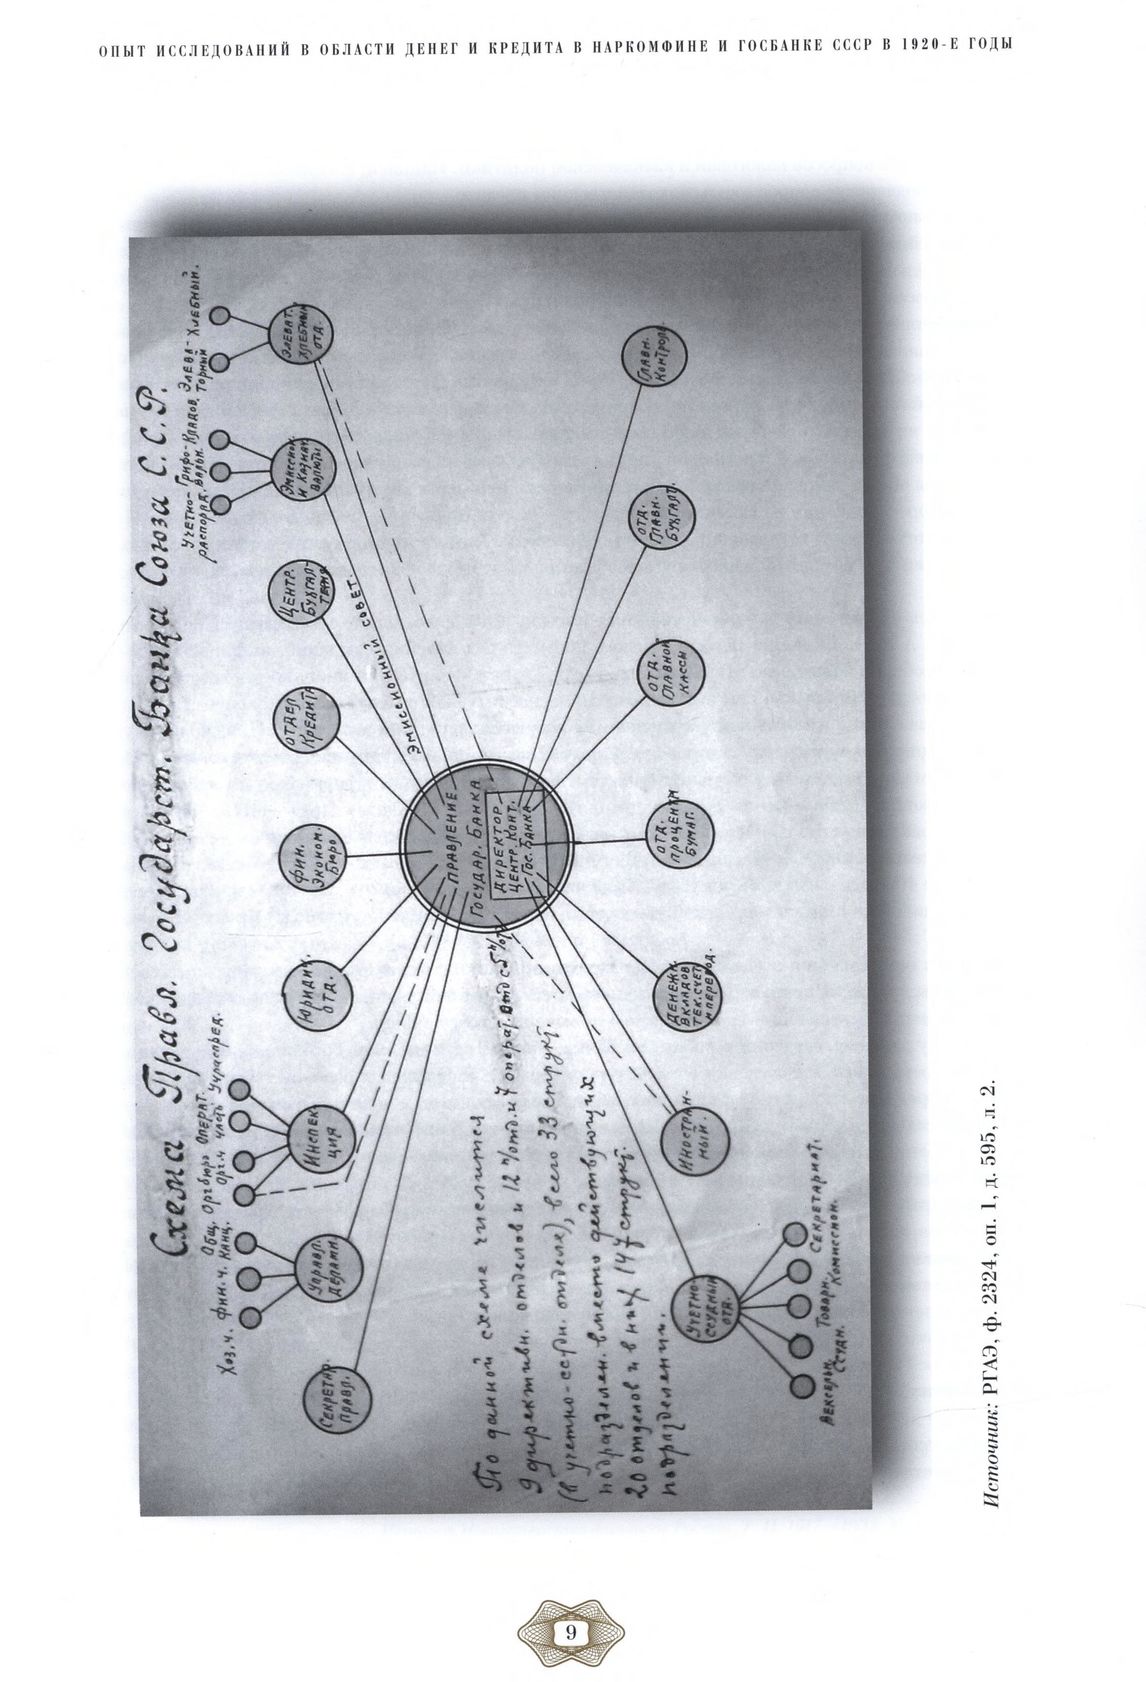 ОПЫТ ИССЛЕДОВАНИЙ В ОБЛАСТИ ДЕНЕГ И КРЕДИТА В НАРКОМФИНЕ И ГОСБАНКЕ СССР В 1920-Е ГОДЫ
Схема Правл. Государст. Банка Союза С.С.Р.
Хоз.ч.
Фин.ч.
Общ.
Канц.
Оргбюро
Орг.ч
Операт.
часть
Учраспред.
Учетно-
распоряд.
Грифо-
вальн.
Кладов.
Элева-
торный
Хлебный.
Секретар.
Правл.
Управл.
делами
Инспек
ция
Юридич.
отд.
Фин.
Эконом.
Бюро
Отдел
Кредита
Центр.
Бухгал-
терия
Эмиссион.
и Казнач
валюты
Элеват.
Хлебный
отд.
Эмиссионный совет.
Правление
Государ. Банка
Директор
Центр. Конт.
Гос. Банка
По данной схеме числится
9 директивн. отделов и 12 п/отд. и 7 операт. отд с 5 п/от
(в учетно-ссудн. отделе), всего 33 структ.
подразделен. вместо действующих
20 отделов и в них 147 структ.
подразделений.
Учетно-
ссудный
отд.
Иностран-
ный.
Денежн.
вкладов
тек.счет
и перевод.
отд.
процентн
бумаг.
отд.
главной
кассы
отд.
Главн.
Бухгалт.
Главн.
Контрол.
Вексельн.
Ссудн.
Товарн.
Комиссион.
Секретариат.
Источник: РГАЭ, ф. 2324, оп. 1, д. 595, л. 2.
9